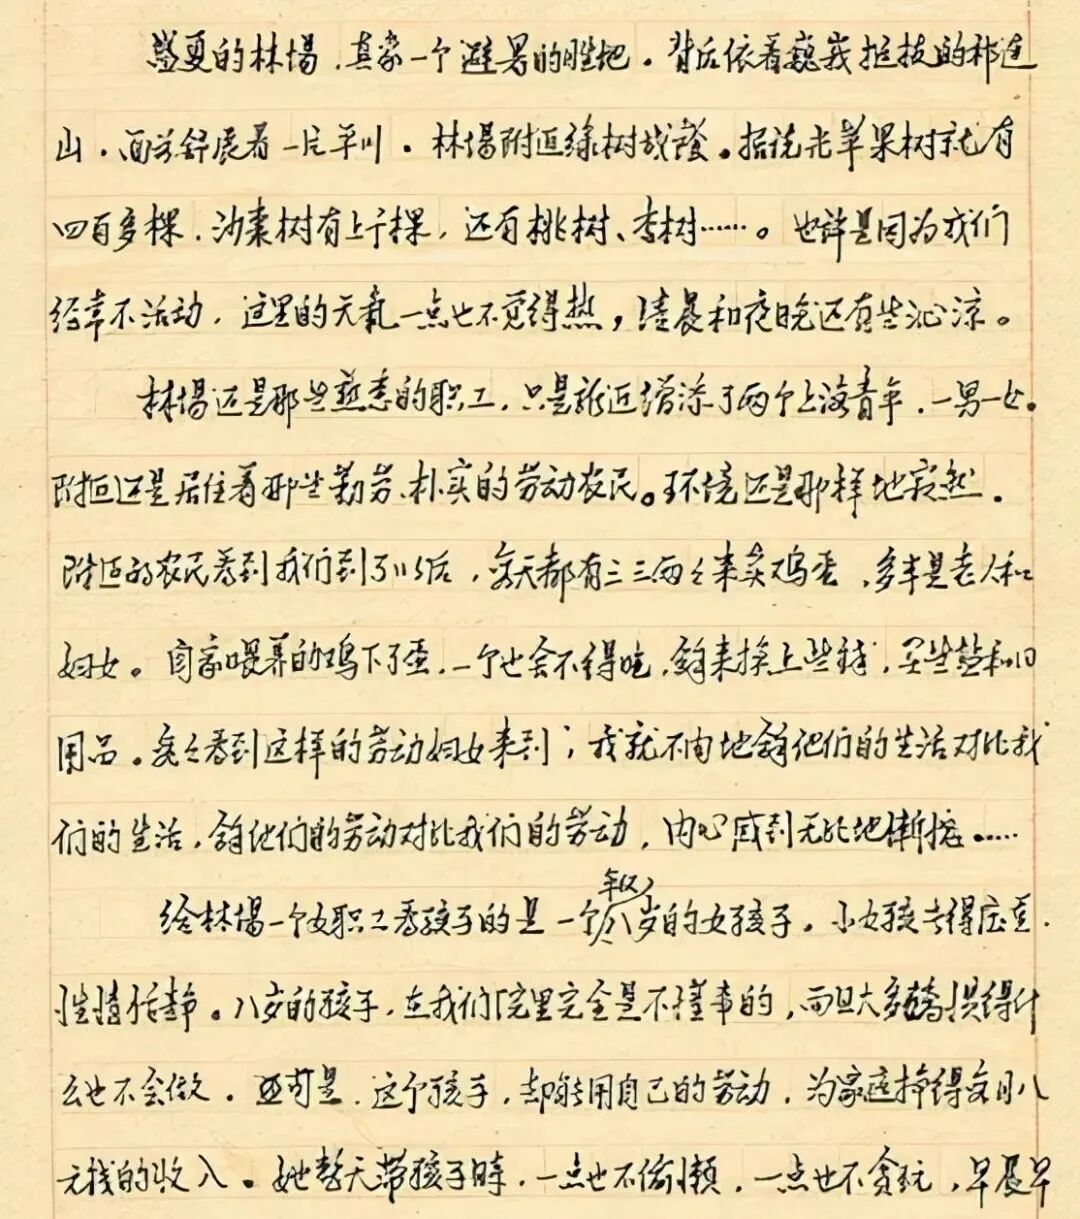 盛夏的林場，真象一个避暑的胜地。背后依着巍峩挺拔的祁连
山，面前舒展着一片平川。林場附近綠树成蔭。据说光苹果树就有
四百多棵，沙枣树有上千棵，还有桃树、李树……。也許是因为我们
经常不活动，这里的天氣一点也不觉得热，清晨和夜晚还有些沁凉。
林場还是那些熟悉的职工，只是新近增添了两个上海青年，一男一女。
附近还是居住着那些勤劳、朴实的劳动农民。环境还是那样地寂然。
附近的农民看到我们到了以后，每天都有三三两々来卖鸡蛋，多半是老人和
妇女。自家喂养的鸡下了蛋，一个也舍不得吃，能来换上些钱，买些盐和日
用品。每々看到这样的劳动妇女来到，我就不由地能他们的生活对比我
们的生活，能他们的劳动对比我们的劳动，内心感到无比地慚愧……
给林場一个女职工看孩子的是一个年仅八岁的女孩子。小女孩长得庄重，
性情恬静。八岁的孩子，在我们院里完全是不懂事的，而且大多嬌惯得什
么也不会做。可是，这个孩子，却能用自己的劳动，为家庭挣得每月八
元钱的收入。她整天带孩子時，一点也不偷懒，一点也不贪玩，早晨早